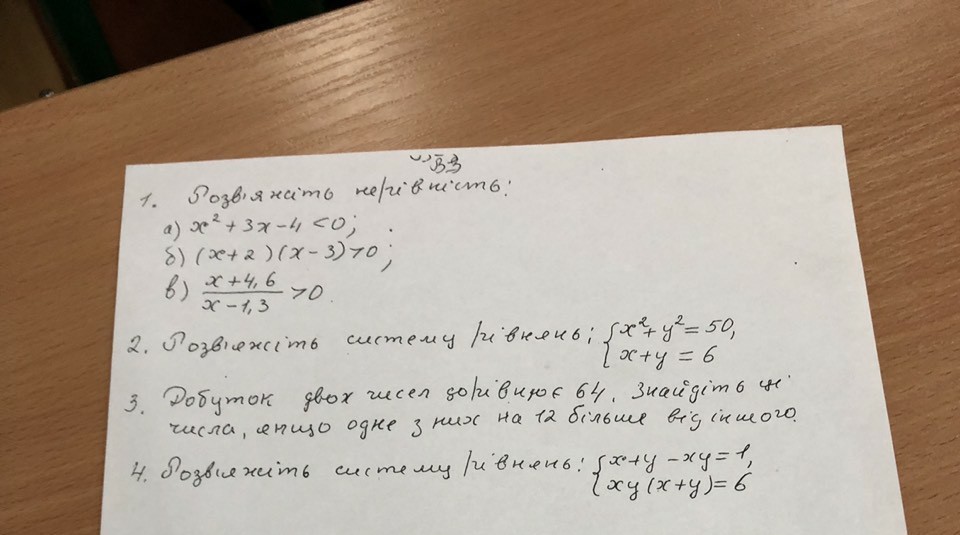 В3
1. Розв'яжіть нерівність:
а) x² + 3x - 4 < 0;
б) (x+2)(x-3) > 0;
в) \frac{x+4,6}{x-1,3} > 0.
2. Розв'яжіть систему рівнянь: { x² + y² = 50,
x + y = 6
3. Добуток двох чисел дорівнює 64. Знайдіть ці
числа, якщо одне з них на 12 більше від іншого.
4. Розв'яжіть систему рівнянь: { x + y - xy = 1,
xy(x+y) = 6